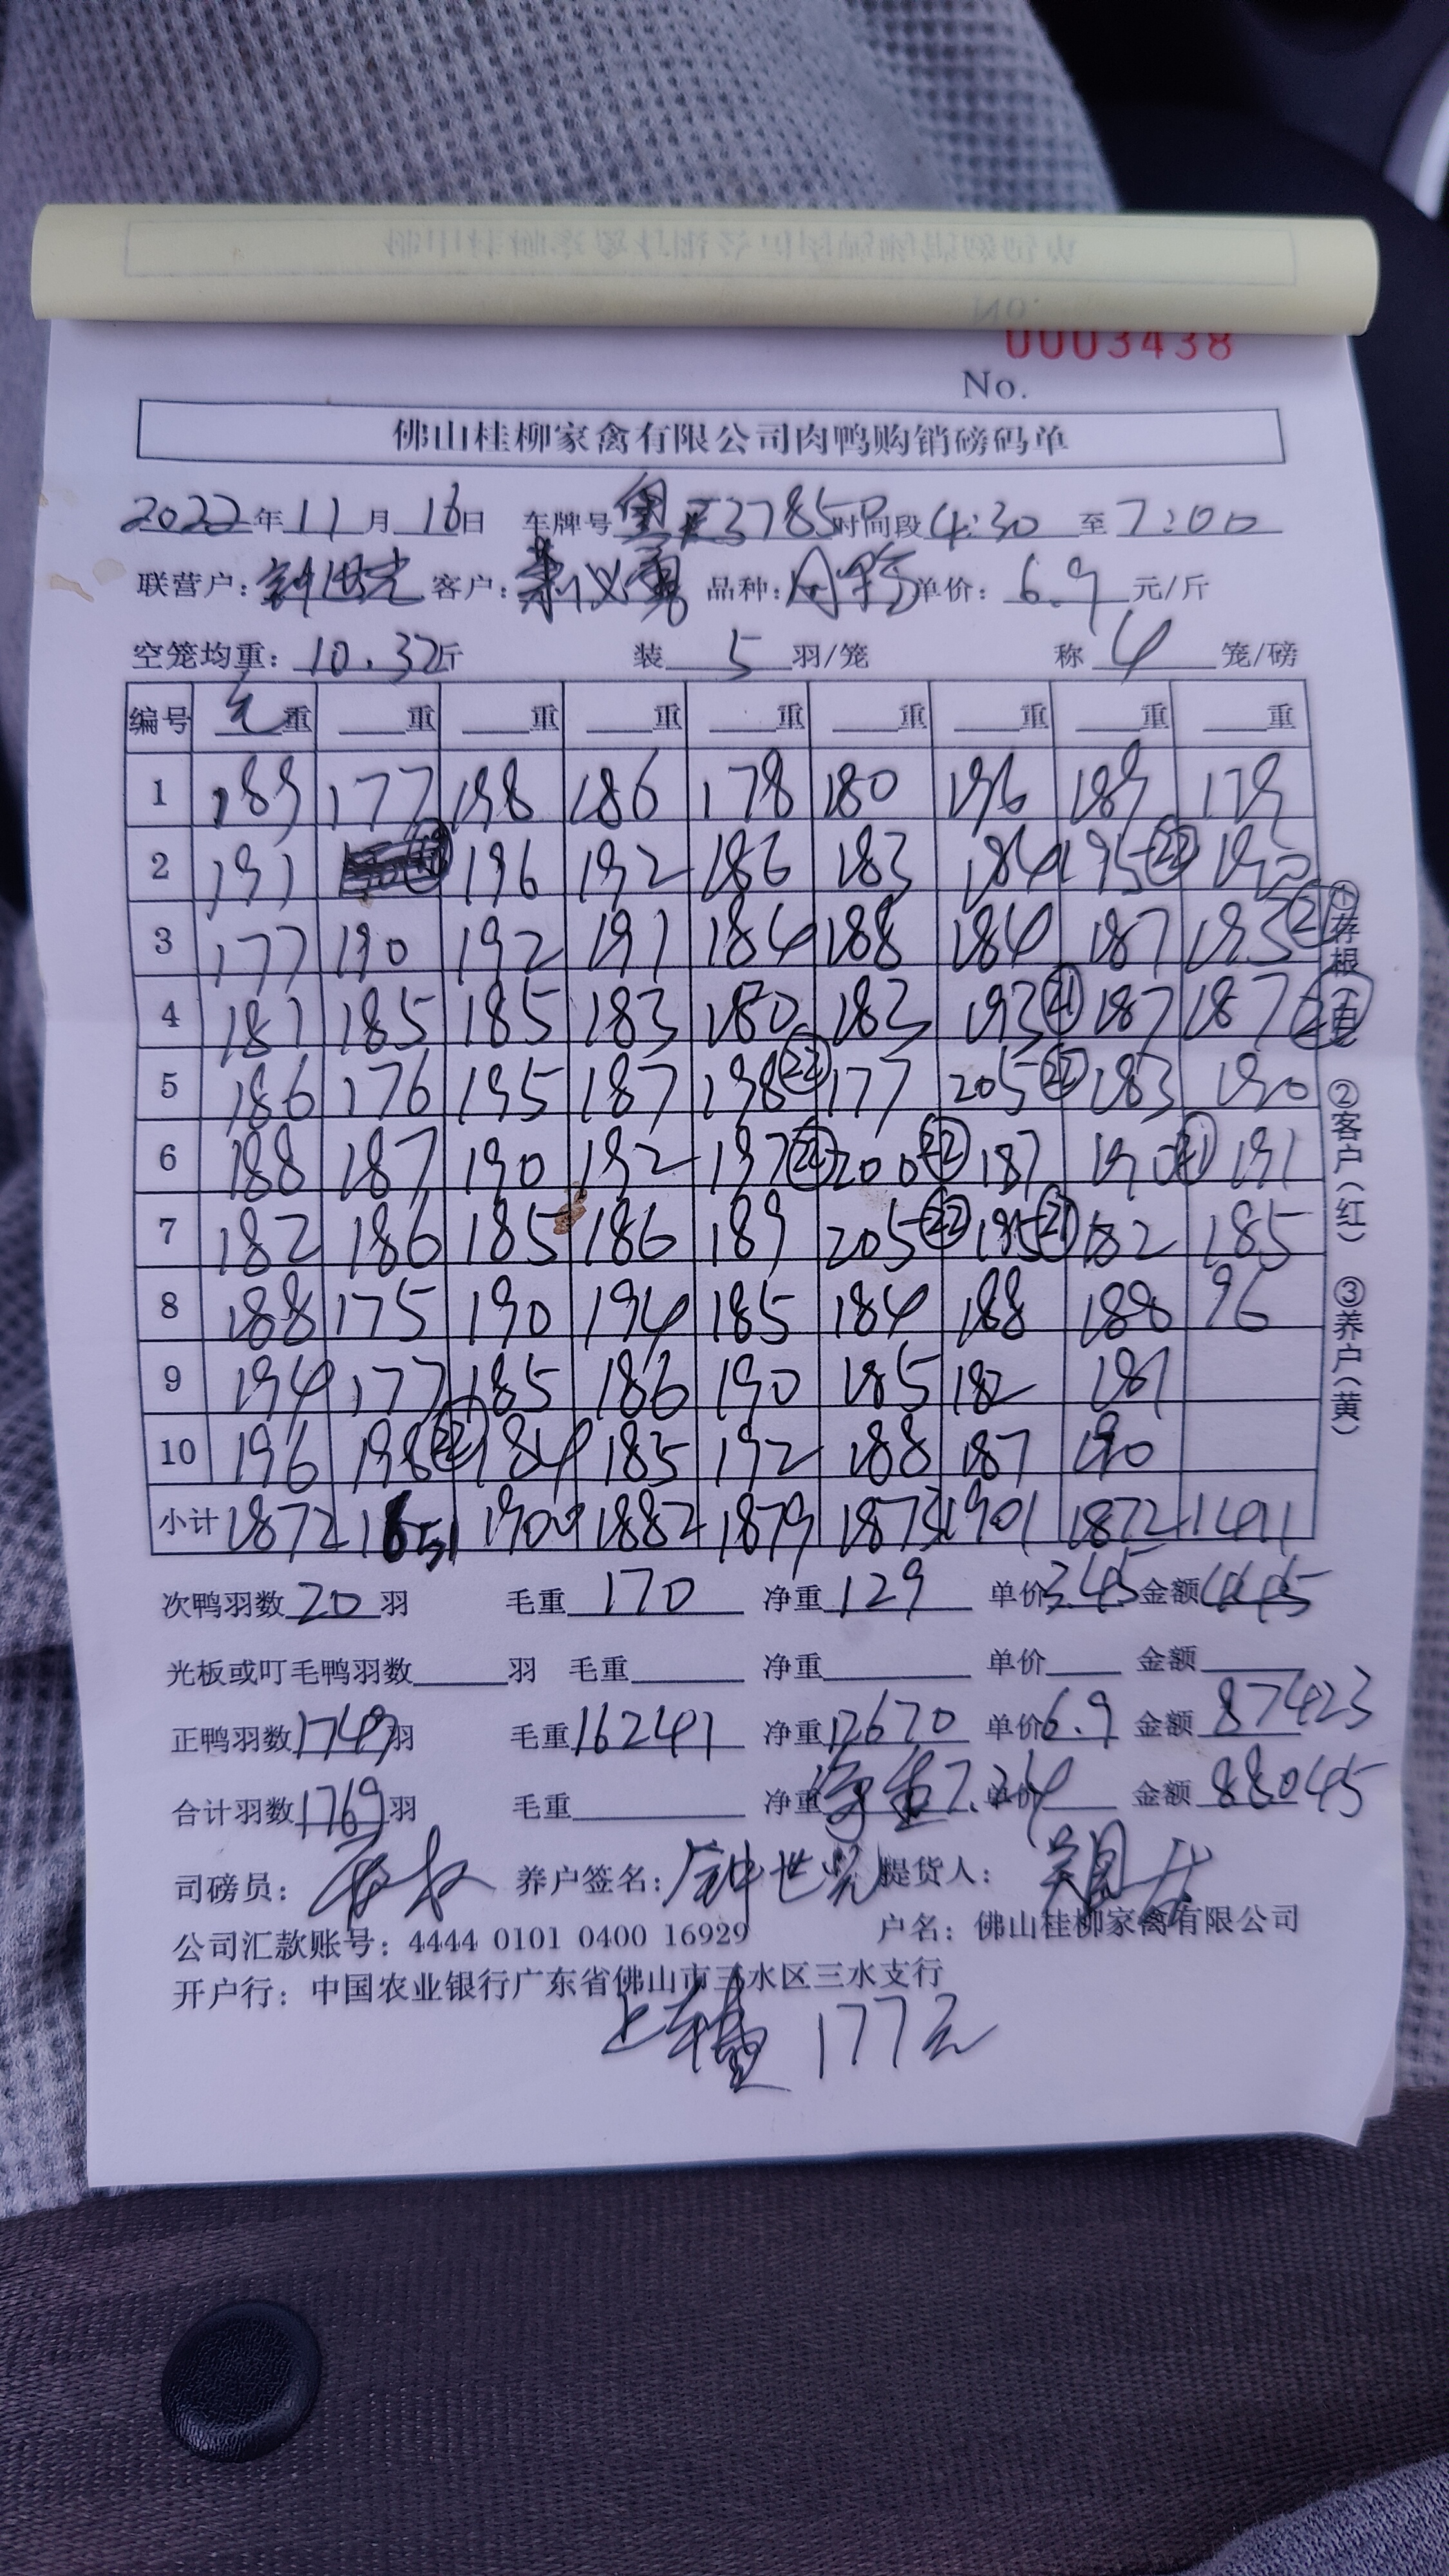 0003438
No.
佛山桂柳家禽有限公司肉鸭购销磅码单
2022年11月16日 车牌号 粤 37850 时间段 4:30 至 7:00
联营户: 钟世光 客户: 品种: 单价: 6.9 元/斤
空笼均重: 10.32斤 装 5 羽/笼 称 4 笼/磅
编号 毛重 重 重 重 重 重 重 重 重
1 189 177 198 186 178 180 196 189 179
2 191 196 192 186 183 184 195㉒ 190
3 177 190 192 191 184 188 184 187 193
4 181 185 185 183 180 183 193㉑ 187 187
5 186 176 195 187 198㉒ 177 205㉒ 183 190
6 188 187 190 192 197 200㉒ 187 190㉑ 191
7 182 186 185 186 189 205㉒ 195㉑ 182 185
8 188 175 190 194 185 184 188 188 96
9 194 177 185 186 190 185 182 181
10 196 198㉒ 184 185 192 188 187 190
小计 1872 1651 1900 1882 1879 1873 1901 1872 1411
次鸭羽数 20 羽 毛重 170 净重 129 单价 3.45 金额 445
光板或叮毛鸭羽数 羽 毛重 净重 单价 金额
正鸭羽数 1749 羽 毛重 16241 净重 12670 单价 6.9 金额 87423
合计羽数 1769 羽 毛重 净重 均重7.24 单价 金额 88045
司磅员: 养户签名: 钟世光 提货人:
公司汇款账号: 4444 0101 0400 16929 户名: 佛山桂柳家禽有限公司
开户行: 中国农业银行广东省佛山市三水区三水支行
上车费 177元
①存根(白) ②客户(红) ③养户(黄)